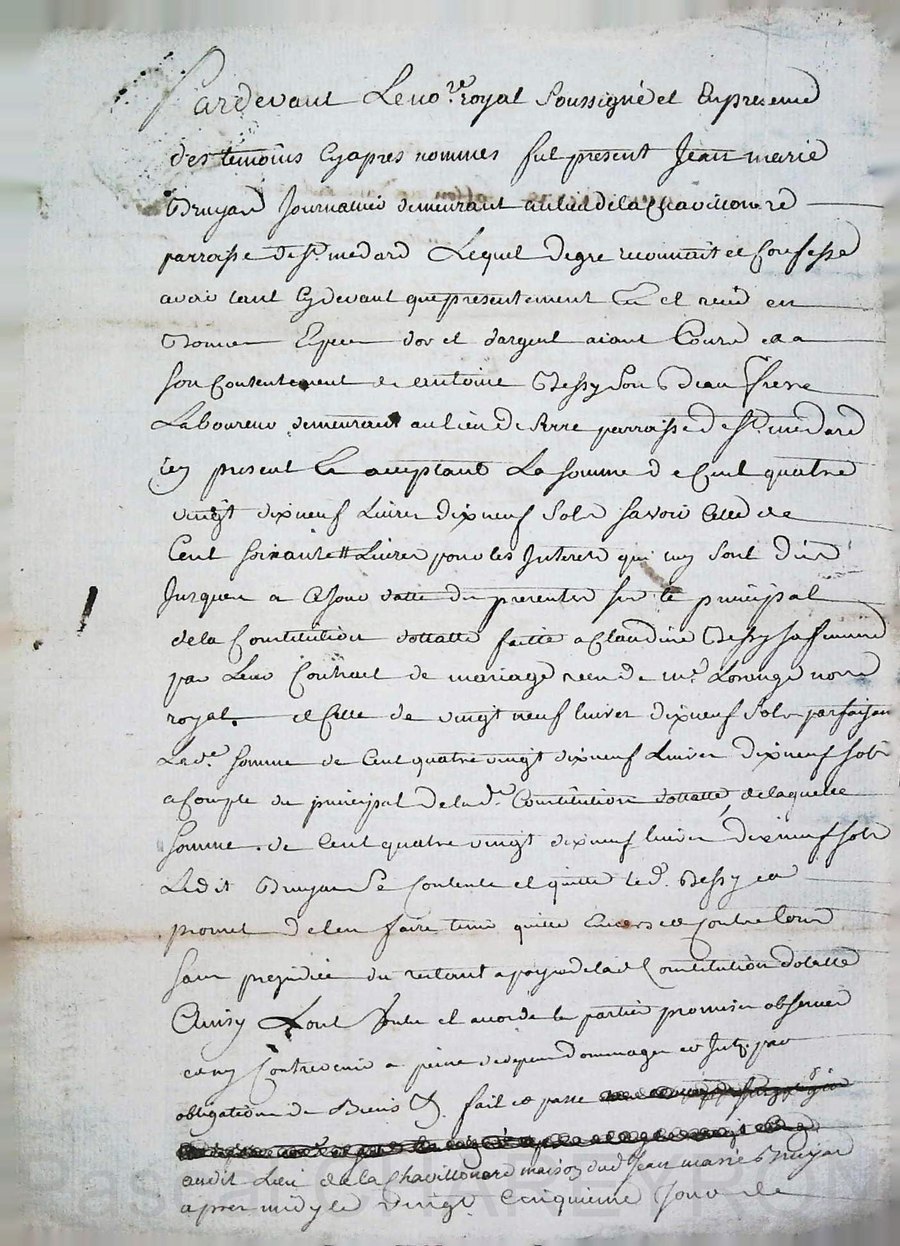 Pardevant Le no.re royal soussigné et En presence
des temoins Cyapres nommes fut present Jean marie
Bruyas Journalier demeurant au lieu de la Chavillonere
parroisse de St. medard Lequel de gre reconnait et Confesse
avoir tant Cy devant que presentement Eu et recu en
Bonnes Especes d'or et d'argent aiant Cours et a
son Contentement de antoine Bessy son Beau frere
Laboureur demeurant au lieu de parroisse de St. medard
icy present et acceptant La somme de Cent quatre
vingt dix neuf Livres dix neuf sols savoir Celle de
Cent soixante # Livres pour les Interets qui luy sont dus
Jusques a ce Jour datte des presentes sur le principal
de la Constitution dottalle faitte a Claudine Bessy sa femme
par Leur Contrat de mariage recu de me. Lorange notre
royal. et Celle de vingt neuf livres dix neuf sols parfaisan
La de. somme de Cent quatre vingt dix neuf Livres dix neuf sols
a Compte du principal de la de. Constitution dottalle, de laquelle
somme de Cent quatre vingt dix neuf livres dix neuf sols
Ledit Bruyas se Contente et quitte le d. Bessy et
promet de l'en faire tenir quitte Envers et Contre tous
sans prejudice du restant a payer de lad Constitution dotalle
Ainsy L'ont voulu et accordé les parties promis observer
et ny Contrevenir a peine de depens dommages et Intz. par
obligation de Biens &. fait et passé
audit Lieu de la Chavillonere maison dud Jean marie Bruyas
apres midy le vingt Cinquieme Jour de